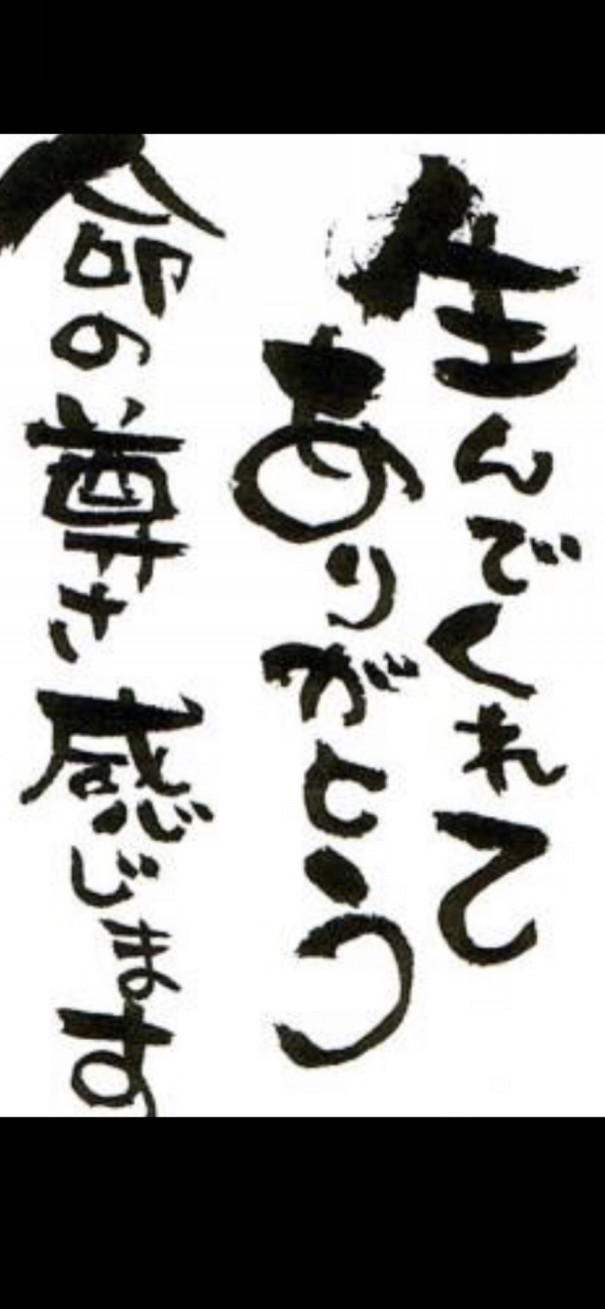 生んでくれて
ありがとう
命の尊さ感じます